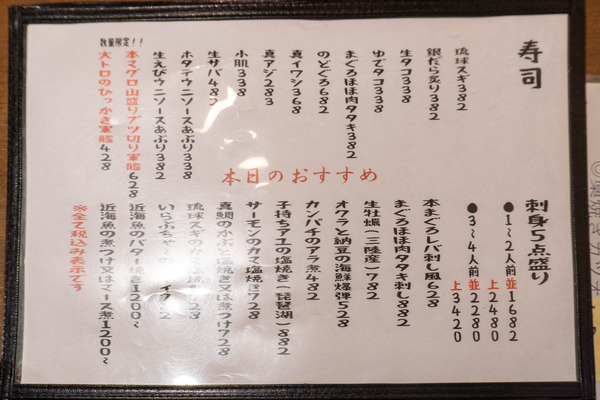 本日のおすすめ
寿司
琉球スギ382
銀だら炙り382
生タコ338
ゆでタコ338
まぐろほほ肉タタキ382
のどぐろ682
真イワシ368
真アジ283
小肌338
生サバ482
ホタテウニソースあぶり338
生えびウニソースあぶり382
数量限定!!
本マグロ山盛りブツ切り軍艦628
大トロのひっかき軍艦428
刺身5点盛り
●1~2人前並1682
上2480
●3~4人前並2280
上3420
本まぐろレバ刺し風628
まぐろほほ肉タタキ刺し882
生牡蠣(三陸産)782
オクラと納豆の海鮮爆弾528
カンパチのアラ煮482
子持ちアユの塩焼き(琵琶湖)882
サーモンのカマ塩焼き728
真鯛のかぶと塩焼き又は煮つけ728
琉球スギの
いらぶちゃーの
近海魚のバター焼き1200~
近海魚の煮つけ又はマース煮1200~
※全て税込み表示です